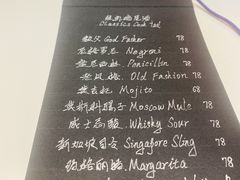 Classics Cocktail
教父 God Father 78
Negroni 78
Penicillin 78
Old Fashion 78
Mojito 68
莫斯科骡子 Moscow Mule 78
威士忌酸 Whisky Sour 78
新加坡司令 Singapore Sling 78
玛格丽特 Margarita 78